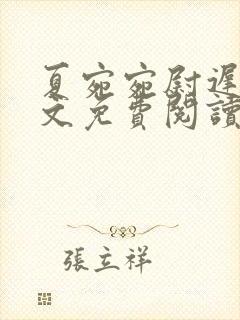 夏宛宛尉遲
文免費閱讀
張立祥